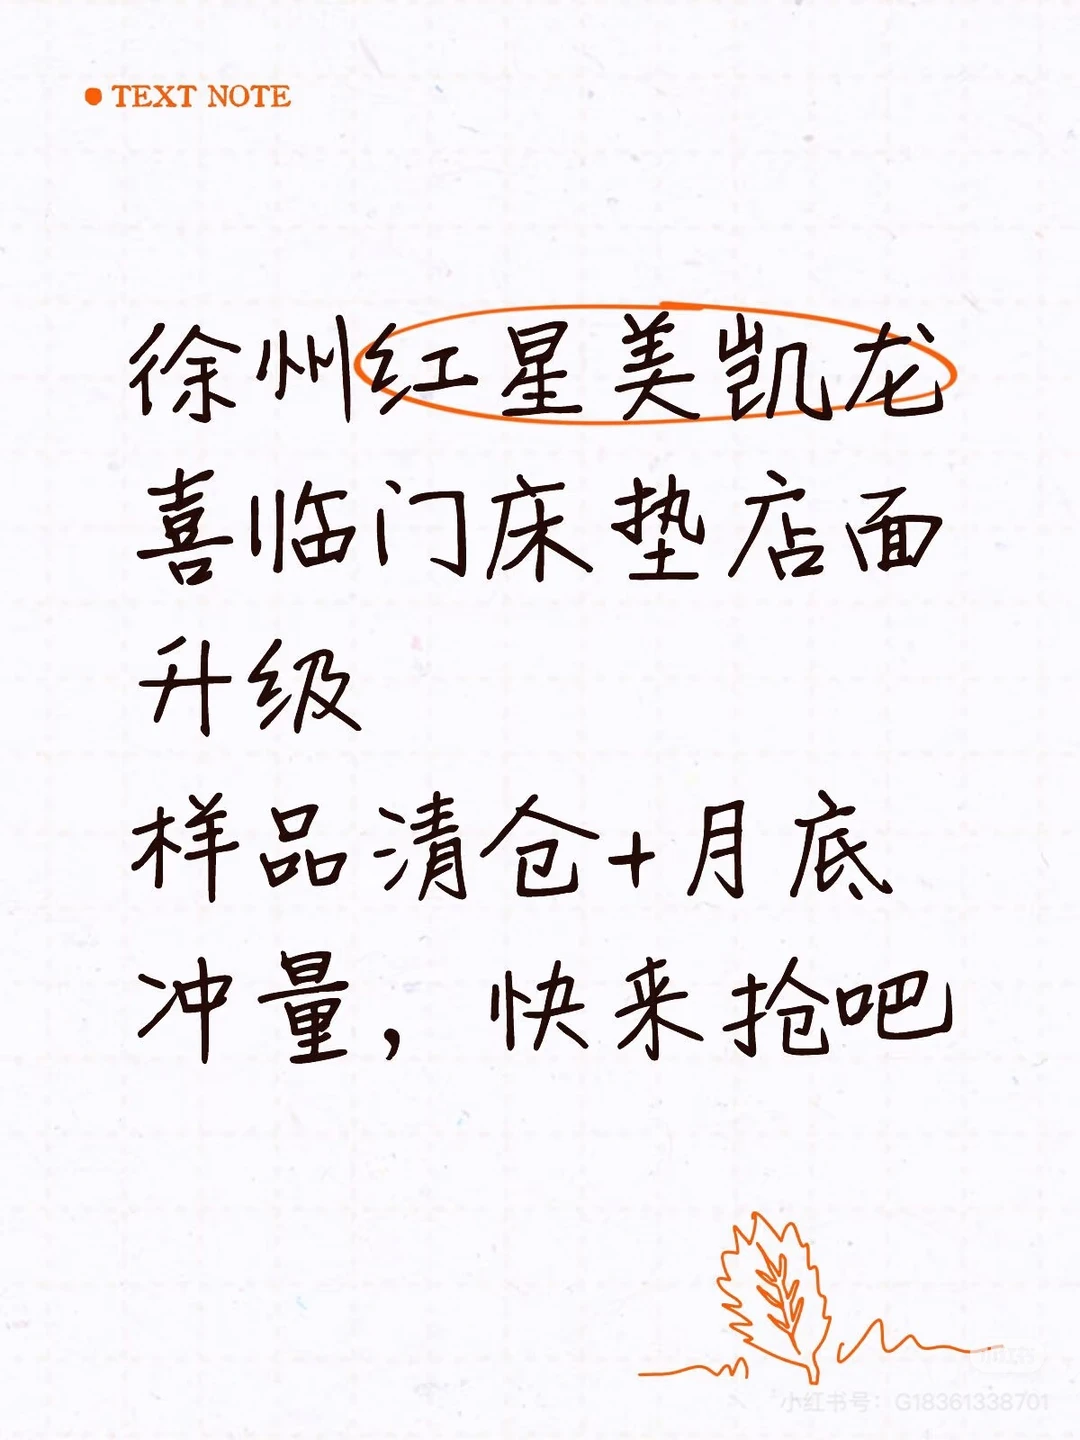 TEXT NOTE
徐州红星美凯龙
喜临门床垫店面
升级
样品清仓+月底
冲量，快来抢吧
小红书
小红书号：G18361338701